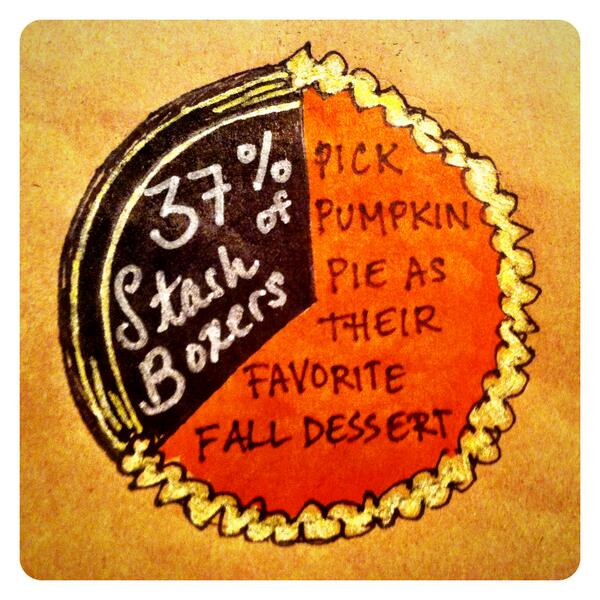 37% of
Stash
Boxers
PICK
PUMPKIN
PIE AS
THEIR
FAVORITE
FALL DESSERT